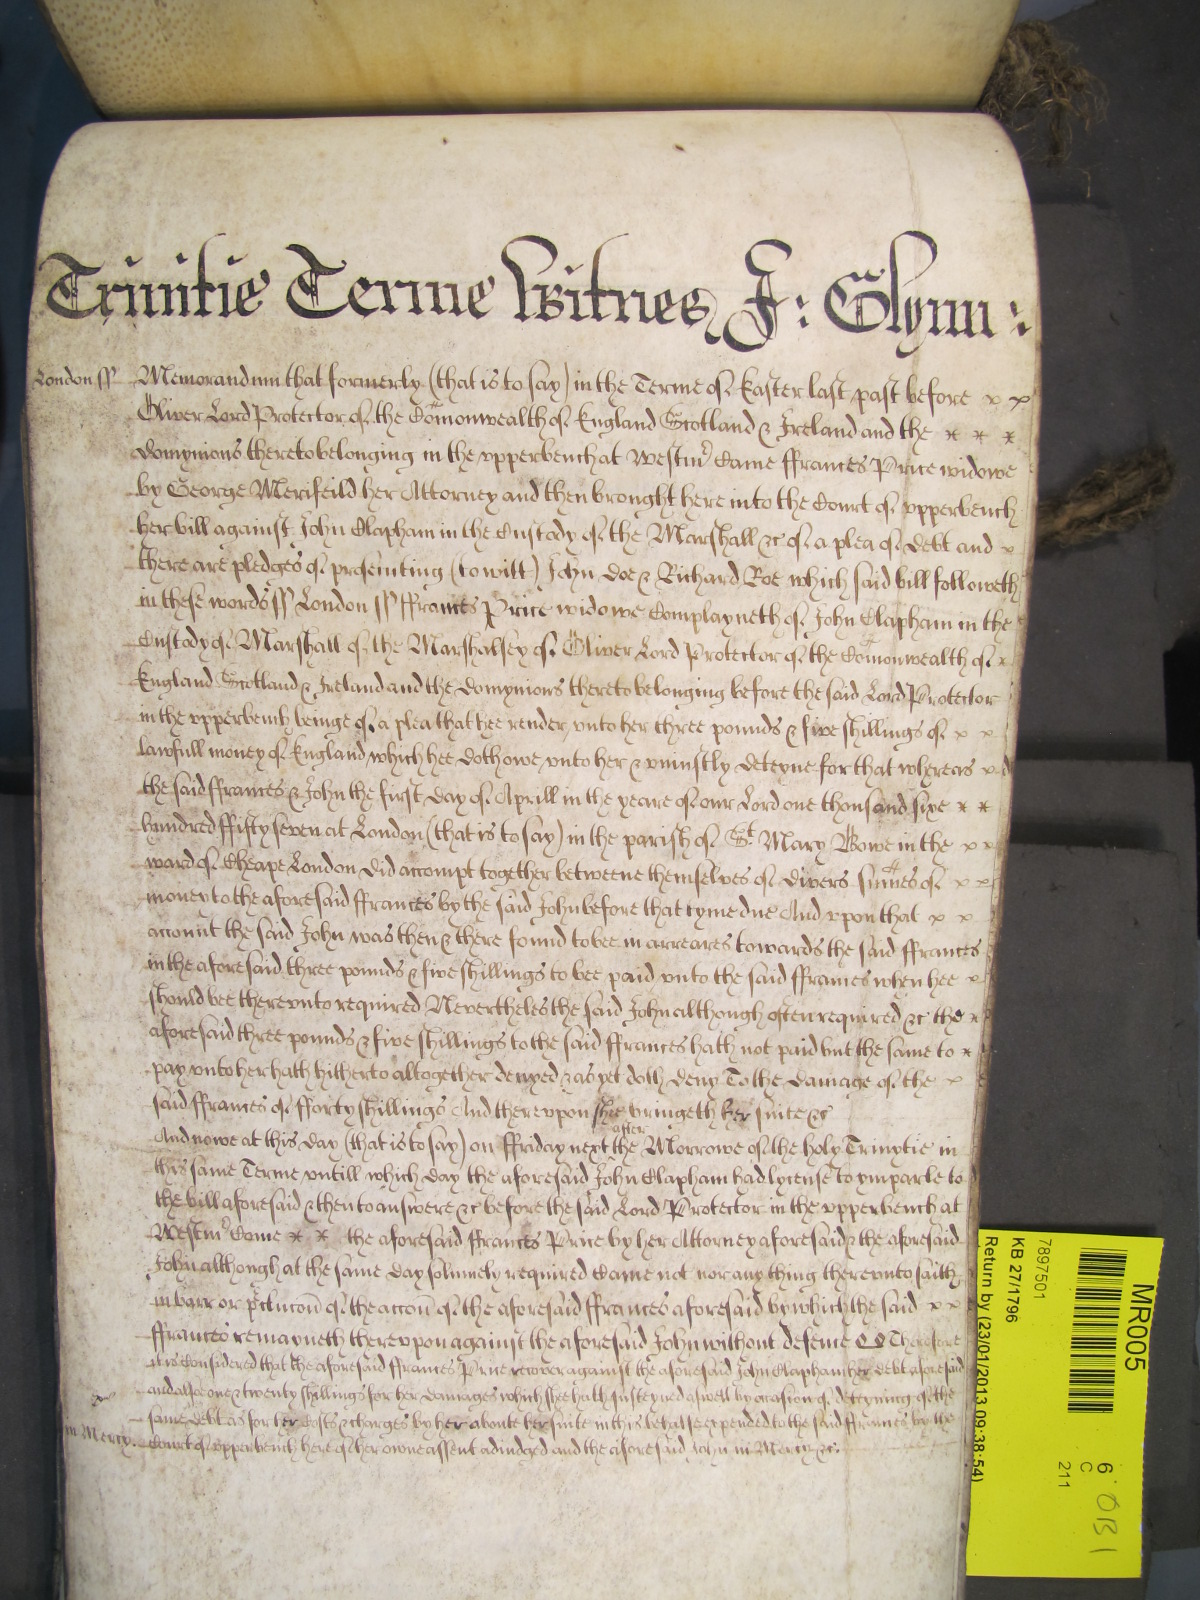 Trinitie Terme Witnes J: Glynn:
London ss Memorandum that formerly (that is to say) in the Terme of Easter last past before x x
Oliver Lord Protector of the Comonwealth of England Scotland & Ireland and the x x x
domynions thereto belonging in the upperbench at Westmr Came ffrances Price widowe
by George Merifeild her Attorney and then brought here into the Court of upperbench
her bill against John Clapham in the Custody of the Marshall &c of a plea of debt and x
there are pledges of prosecuting (to witt) John Doe & Richard Roe which said bill followeth
in these words ss London ss ffrances Price widowe Complayneth of John Clapham in the
Custody of Marshall of the Marshalsey of Oliver Lord Protector of the Comonwealth of x
England Scotland & Ireland and the domynions thereto belonging before the said Lord Protector
in the upperbench beinge of a plea that hee render unto her three pounds & five shillings of x x
lawfull money of England which hee doth owe unto her & uniustly deteyne for that whereas x
the said ffrances & John the first day of Aprill in the yeare of our Lord one thousand sixe x x
hundred ffifty seven at London (that is to say) in the parish of St. Mary Bowe in the x x
ward of Cheape London did accompt together betweene themselves of divers sumes of x x
money to the aforesaid ffrances by the said John before that tyme due And upon that x x
account the said John was then & there found to bee in arreares towards the said ffrances
in the aforesaid three pounds & five shillings to bee paid unto the said ffrances when hee x
should bee thereunto required Nevertheles the said John although often required &c the x
aforesaid three pounds & five shillings to the said ffrances hath not paid but the same to x
pay unto her hath hitherto altogether denyed & as yet doth deny To the damage of the x
said ffrances of fforty shillings And thereupon shee bringeth her suite &c
And nowe at this day (that is to say) on ffriday next after the Morrowe of the holy Trinytie in
this same Terme untill which day the aforesaid John Clapham had lycense to ymparle to
the bill aforesaid & then to answere &c before the said Lord Protector in the upperbench at
Westmr Come x x the aforesaid ffrances Price by her Attorney aforesaid & the aforesaid
John although at the same day solemnely required Came not nor any thing thereunto saith
in barr or preclucon of the accon of the aforesaid ffrances aforesaid by which the said x x
ffrances remayneth thereupon against the aforesaid John without defence Therefore
it is Considered that the aforesaid ffrances Price recover against the aforesaid John Clapham her debt aforesaid
and alsoe one & twenty shillings for her damages which shee hath susteyned aswell by occasion of deteyning of the
same debt as for her Costs & charges by her about her suite in this behalfe expended to the said ffrances by the
in Mercy. Court of upperbench here of her owne assent adiudged and the aforesaid John in Mercy &c.
MR005
7897501
KB 27/1796
Return by (23/01/2013 09:38:54)
6
C
211